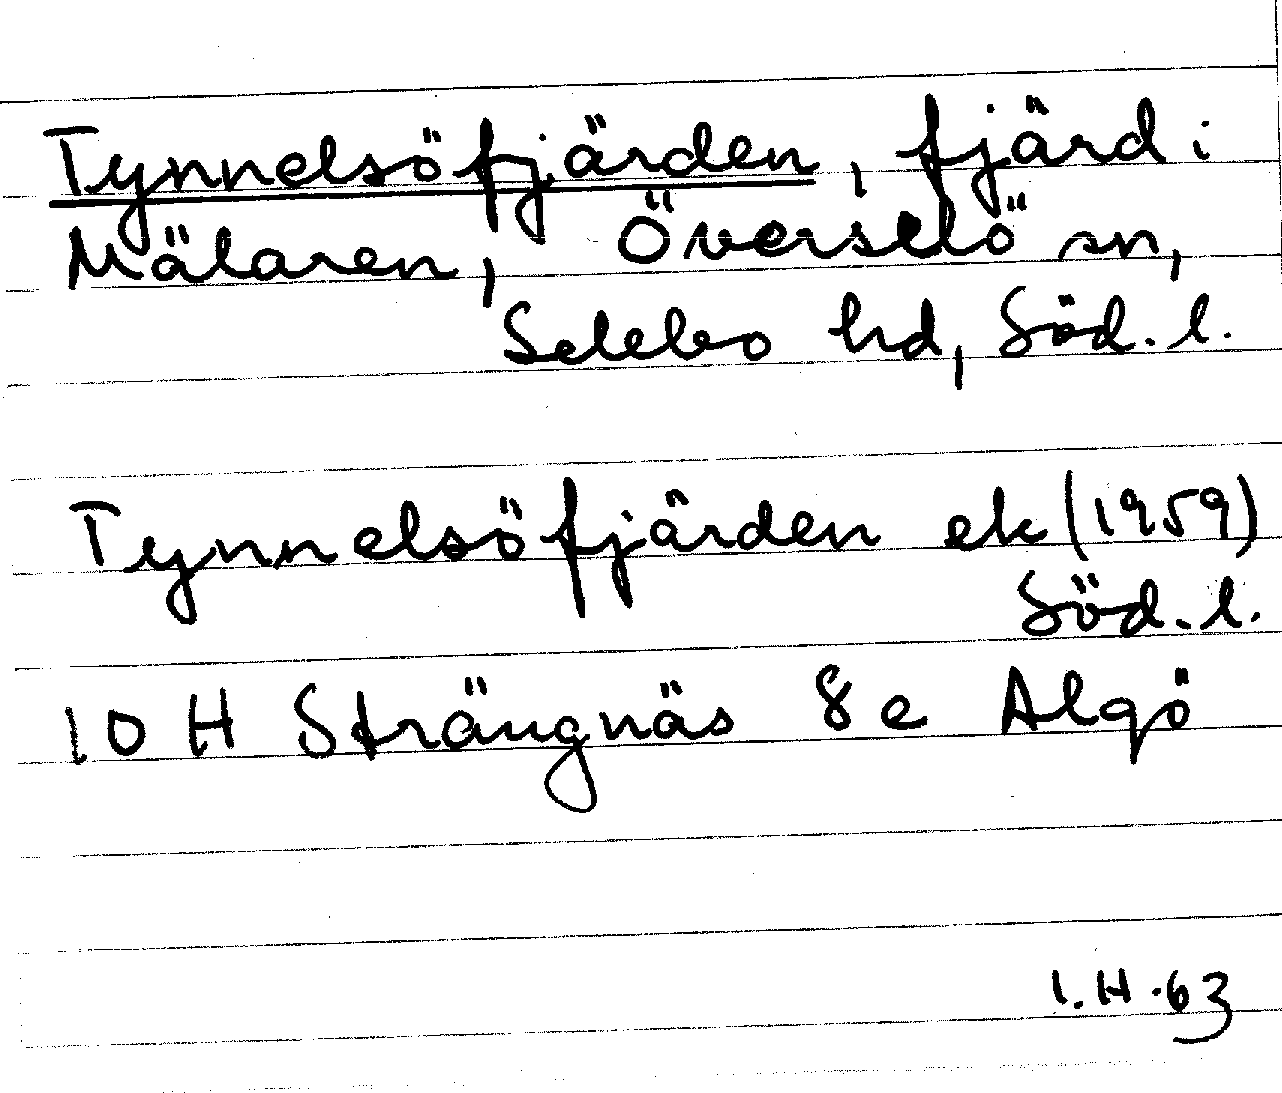 Tynnelsöfjärden, fjärd i
Mälaren, Överselö sn,
Selebo hd, Söd. l.
Tynnelsöfjärden ek (1959)
Söd. l.
10 H Strängnäs 8 e Algö
I. H. 63